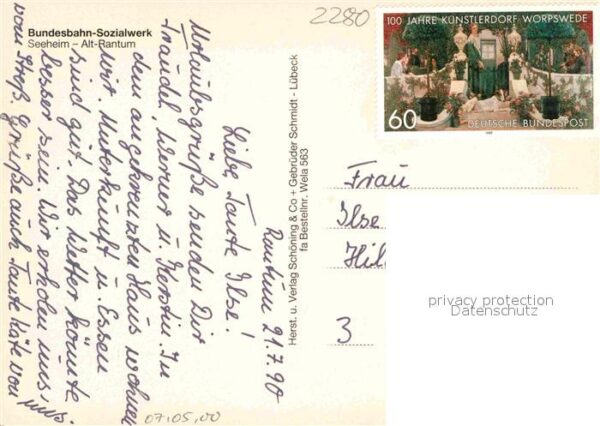 Bundesbahn-Sozialwerk
Seeheim – Alt-Rantum
2280
100 JAHRE KÜNSTLERDORF WORPSWEDE
60
DEUTSCHE BUNDESPOST
Rantum 21.7.90
Liebe Tante Ilse!
Urlaubsgrüße senden Dir
Traudel, Werner u. Kerstin. In
dem angekreuzten Haus wohnen
wir. Unterkunft u. Essen
sind gut. Das Wetter könnte
besser sein. Wir erholen uns
vom Streß. Grüße auch Tante Käte von uns.
Herst. u. Verlag Schöning & Co + Gebrüder Schmidt - Lübeck
fa Bestellnr. Wela 563
Frau
Ilse
Hil
3
privacy protection
Datenschutz
07.05.00